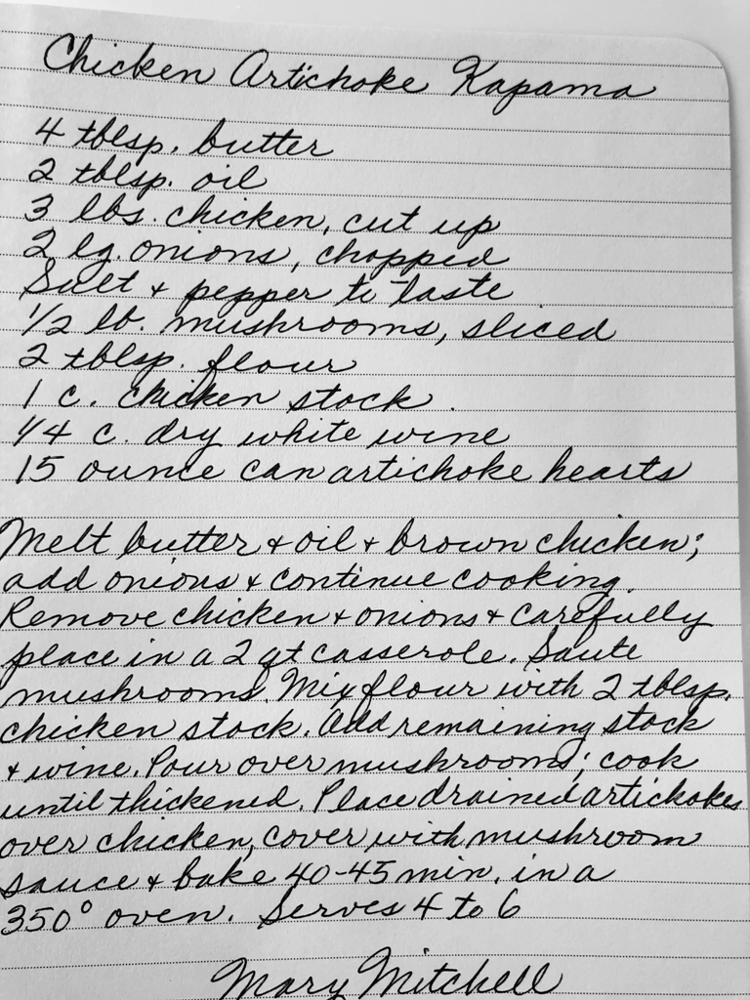 Chicken Artichoke Kapama
4 tblsp. butter
2 tblsp. oil
3 lbs. chicken, cut up
2 lg. onions, chopped
Salt + pepper to taste
1/2 lb. mushrooms, sliced
2 tblsp. flour
1 c. chicken stock.
1/4 c. dry white wine
15 ounce can artichoke hearts
Melt butter + oil + brown chicken;
add onions + continue cooking.
Remove chicken + onions + carefully
place in a 2 qt casserole. Saute
mushrooms. Mix flour with 2 tblsp.
chicken stock. Add remaining stock
+ wine. Pour over mushrooms; cook
until thickened. Place drained artichokes
over chicken, cover with mushroom
sauce + bake 40-45 min. in a
350° oven. Serves 4 to 6
Mary Mitchell